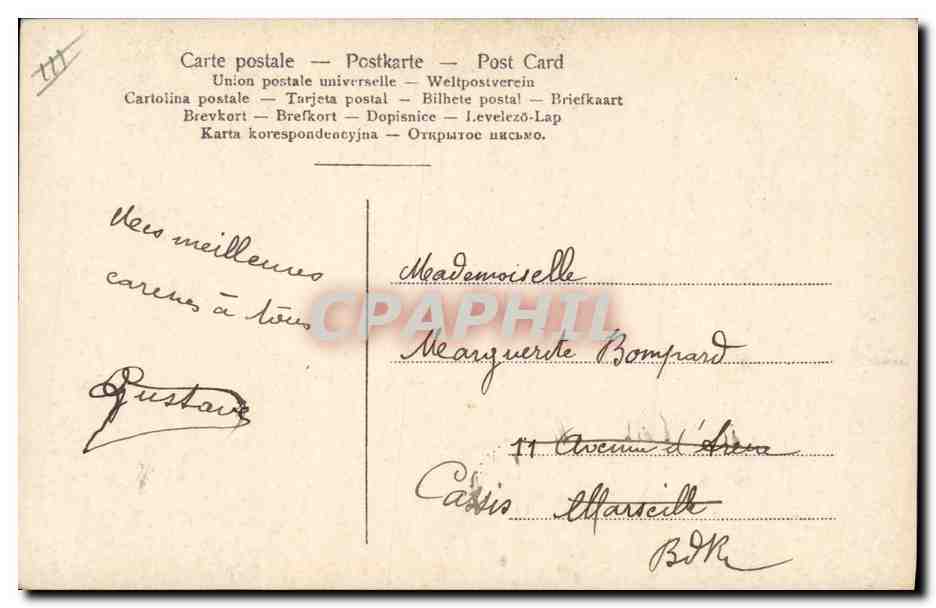 111
Carte postale — Postkarte — Post Card
Union postale universelle — Weltpostverein
Cartolina postale — Tarjeta postal — Bilhete postal — Briefkaart
Brevkort — Brefkort — Dopisnice — Levelező-Lap
Karta korespondencyjna — Открытое письмо.
Mes meilleures
caresses à tous
Gustave
Mademoiselle
Marguerite Bompard
11 Avenue d'Arenc
Cassis Marseille
BdR
CPAPHIL